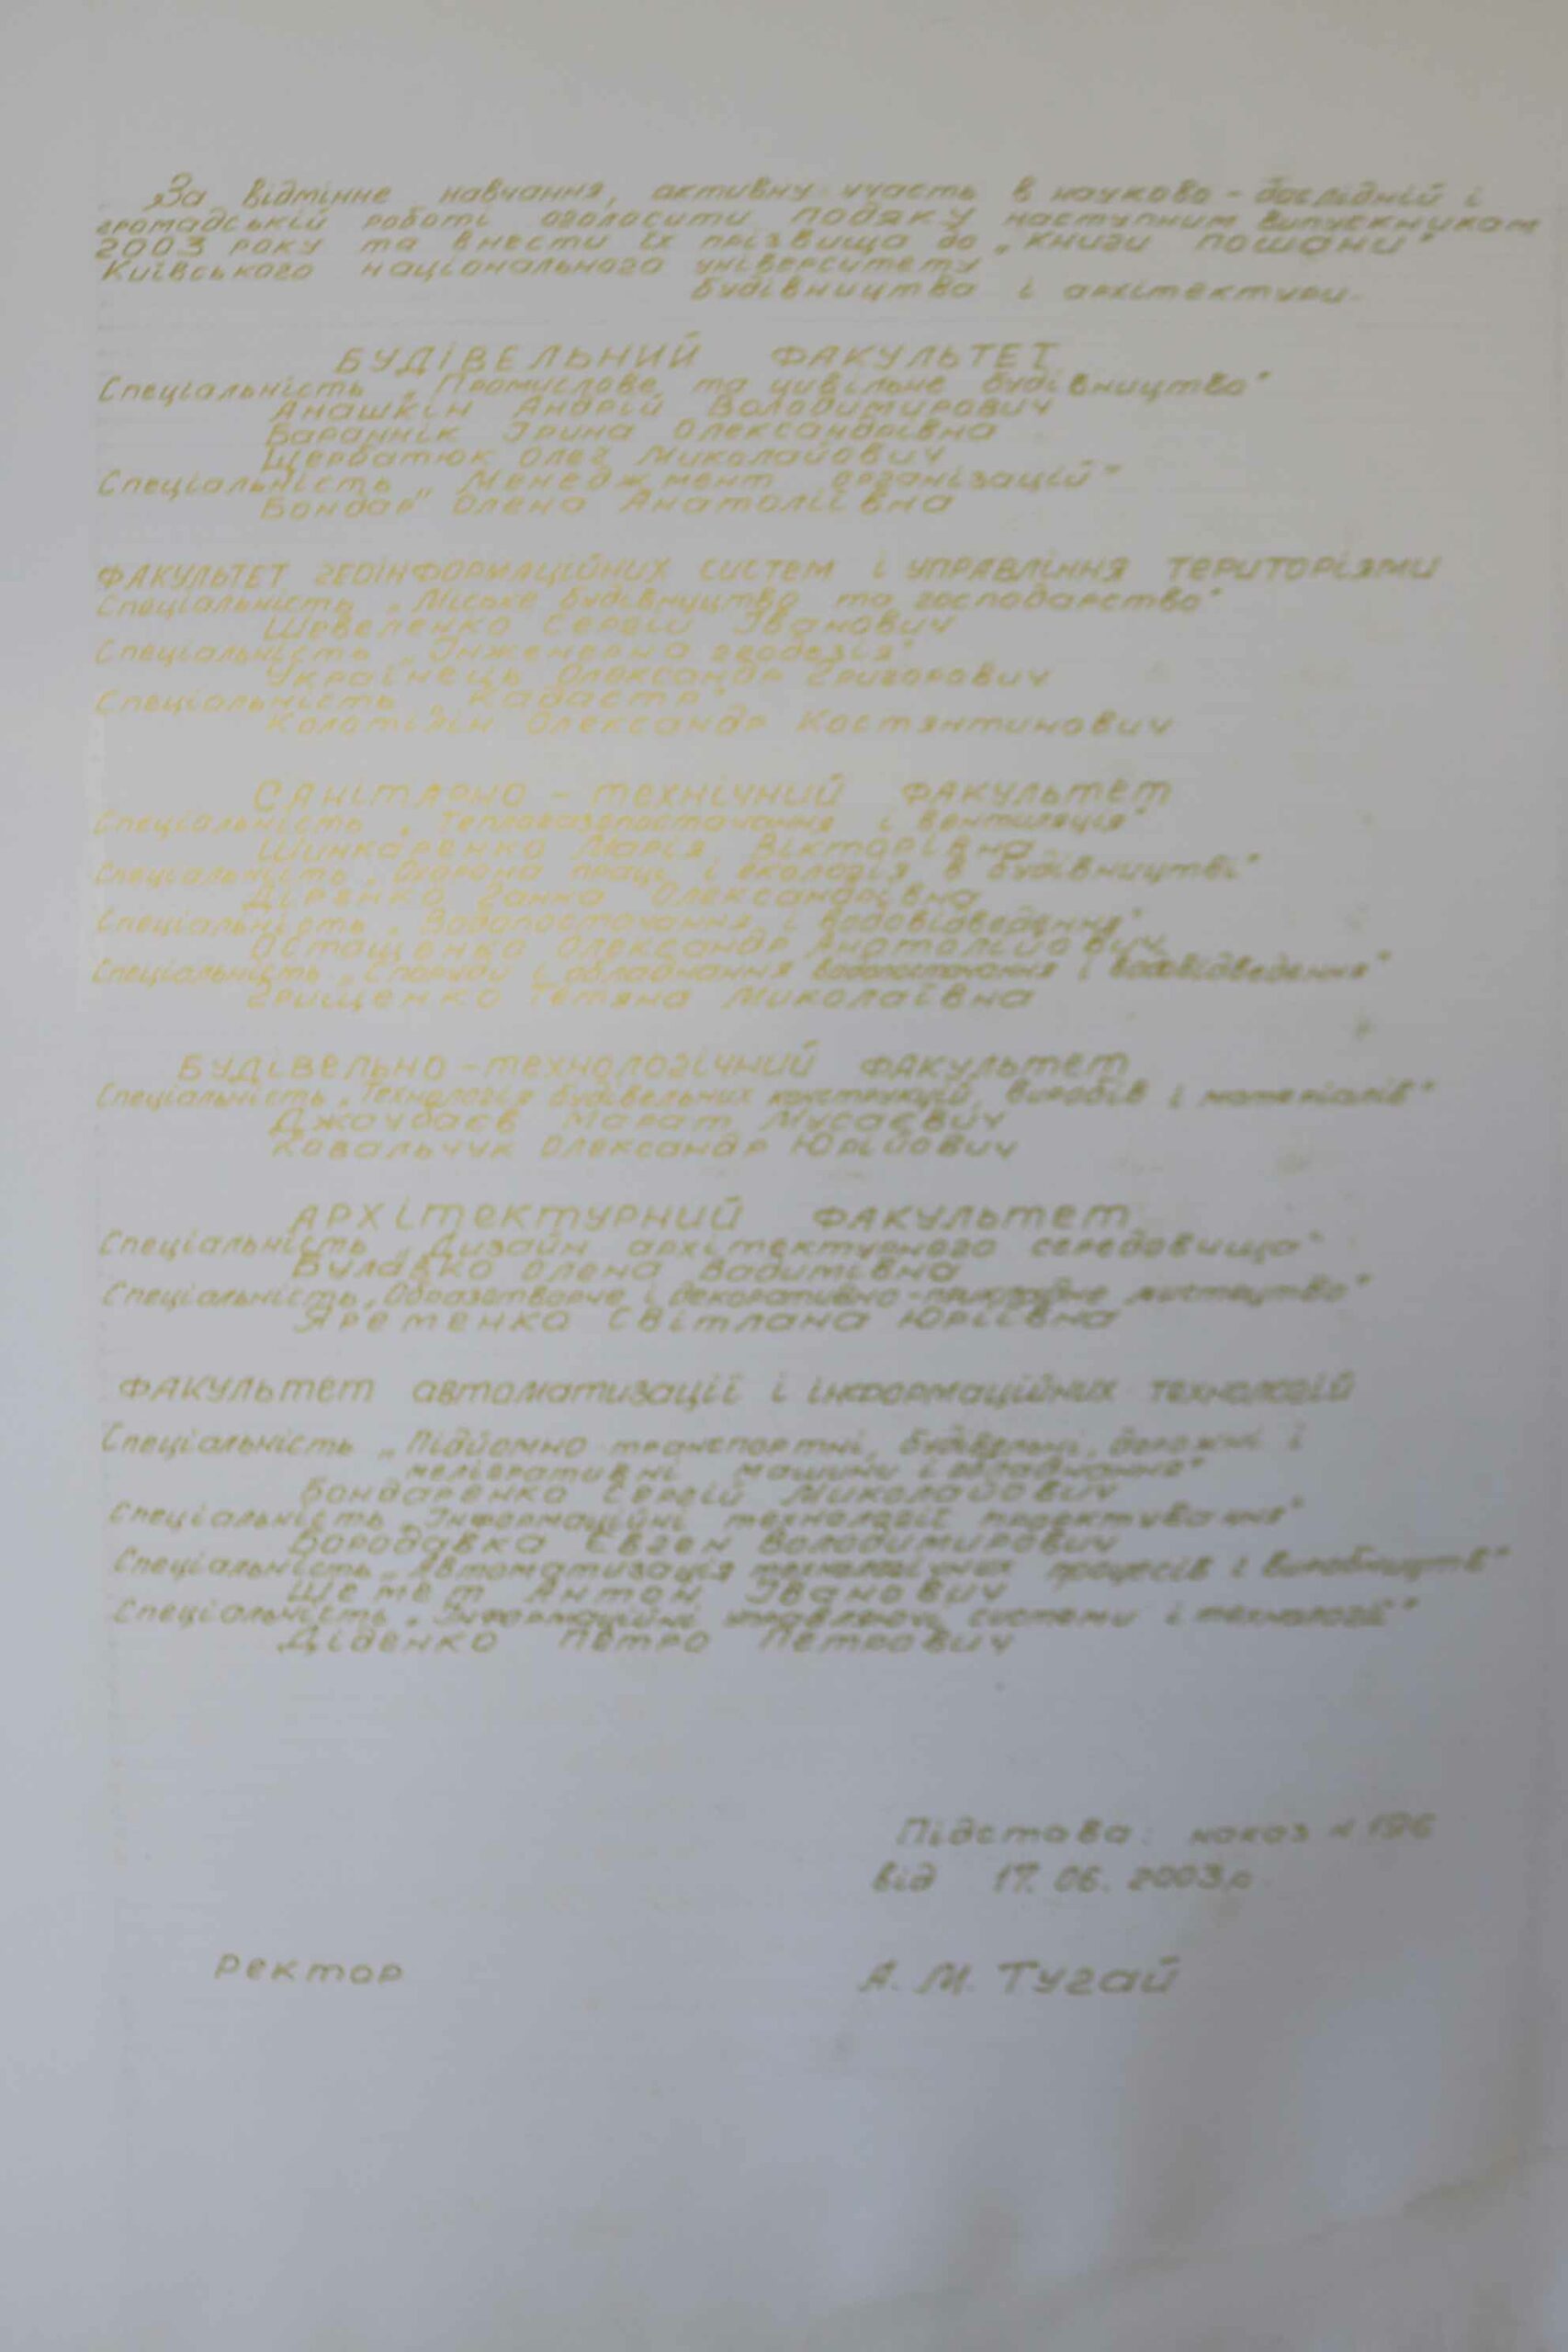 За відмінне навчання, активну участь в науково-дослідній і
громадській роботі оголосити подяку наступним випускникам
2003 року та внести їх прізвища до „Книги пошани"
Київського національного університету
будівництва і архітектури.
БУДІВЕЛЬНИЙ ФАКУЛЬТЕТ
Спеціальність „Промислове та цивільне будівництво"
Анашкін Андрій Володимирович
Бараннік Ірина Олександрівна
Щербатюк Олег Миколайович
Спеціальність „Менеджмент організацій"
Бондар Олена Анатоліївна
ФАКУЛЬТЕТ ГЕОІНФОРМАЦІЙНИХ СИСТЕМ І УПРАВЛІННЯ ТЕРИТОРІЯМИ
Спеціальність „Міське будівництво та господарство"
Шевеленко Сергій Іванович
Спеціальність „Інженерна геодезія"
Українець Олександр Григорович
Спеціальність „Кадастр"
Олександр Костянтинович
САНІТАРНО-ТЕХНІЧНИЙ ФАКУЛЬТЕТ
Спеціальність „Теплогазопостачання і вентиляція"
Шинкаренко Марія Вікторівна
Спеціальність „Охорона праці і екологія в будівництві"
Ганна Олександрівна
Спеціальність „Водопостачання і водовідведення"
Осташенко Олександр Анатолійович
Спеціальність „Споруди і обладнання водопостачання і водовідведення"
Грищенко Тетяна Миколаївна
БУДІВЕЛЬНО-ТЕХНОЛОГІЧНИЙ ФАКУЛЬТЕТ
Спеціальність „Технологія будівельних конструкцій, виробів і матеріалів"
Джаубаєв Марат Мусаєвич
Ковальчук Олександр Юрійович
АРХІТЕКТУРНИЙ ФАКУЛЬТЕТ
Спеціальність „Дизайн архітектурного середовища"
Булавко Олена Вадимівна
Спеціальність „Образотворче і декоративно-прикладне мистецтво"
Яременко Світлана Юріївна
ФАКУЛЬТЕТ автоматизації і інформаційних технологій
Спеціальність „Підйомно транспортні, будівельні, дорожні і
меліоративні машини і обладнання"
Бондаренко Сергій Миколайович
Спеціальність „Інформаційні технології проектування"
Бородавка Євген Володимирович
Спеціальність „Автоматизація технологічних процесів і виробництв"
Шемет Антон Іванович
Спеціальність „Інформаційні управляючі системи і технології"
Діденко Петро Петрович
Підстава: наказ № 196
від 17.06.2003р
Ректор А. М. Тугай